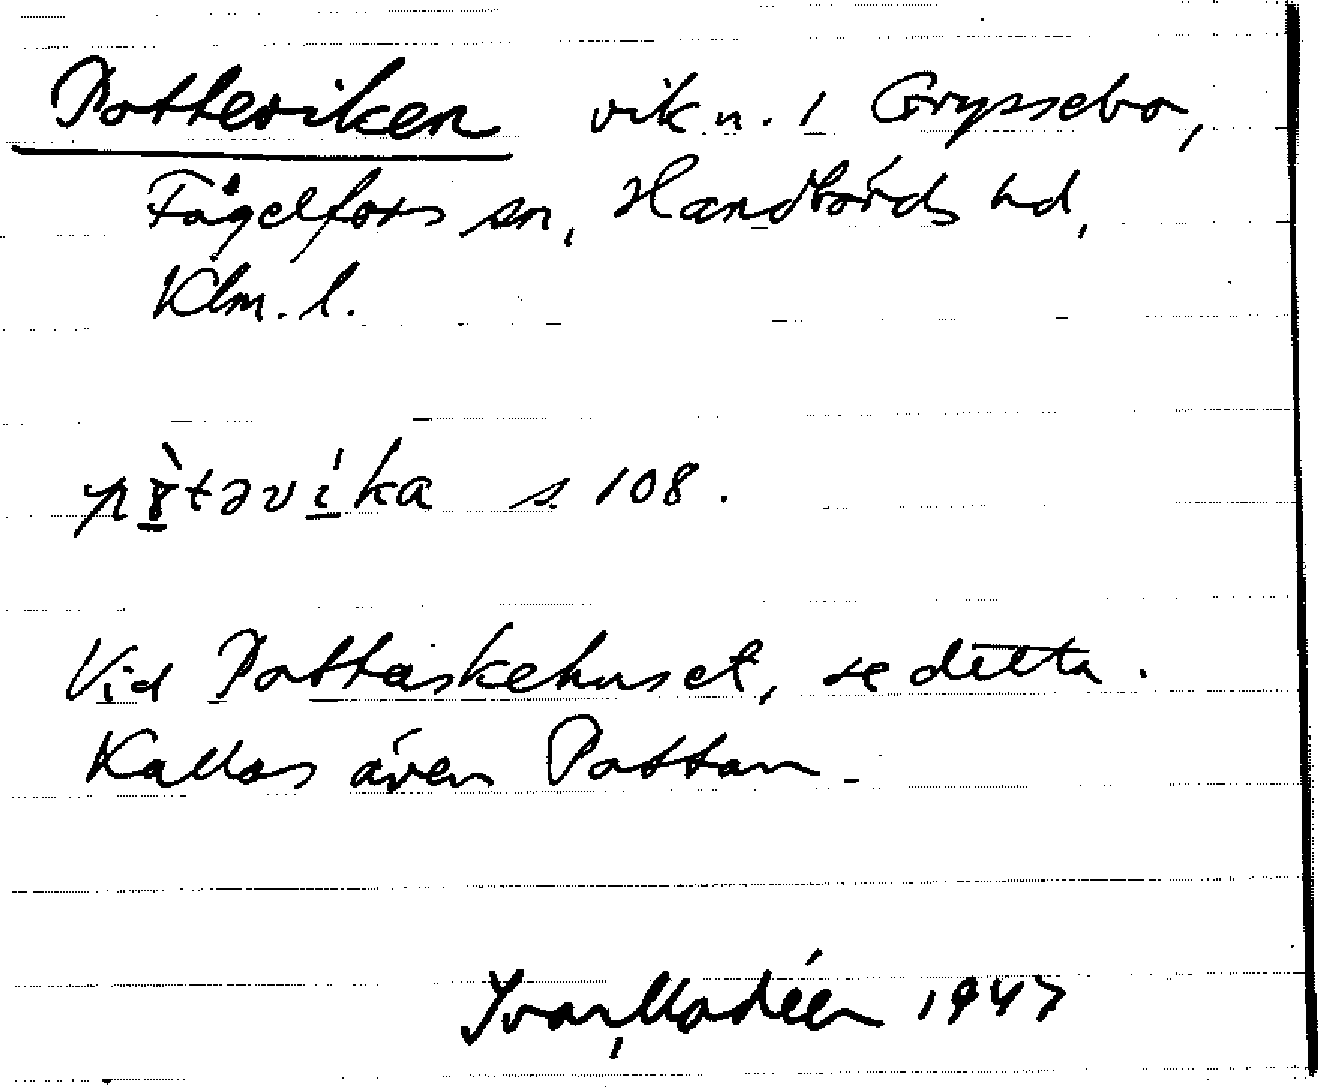 Potteviken vik n. 1 Gryssebo,
Fågelfors sn, Handbörds hd,
Klm. l.
pɤ̀təvi̍ka s 108.
Vid Pottaskehuset, se detta.
Kallas även Pottan.
Ivar Modéer 1947